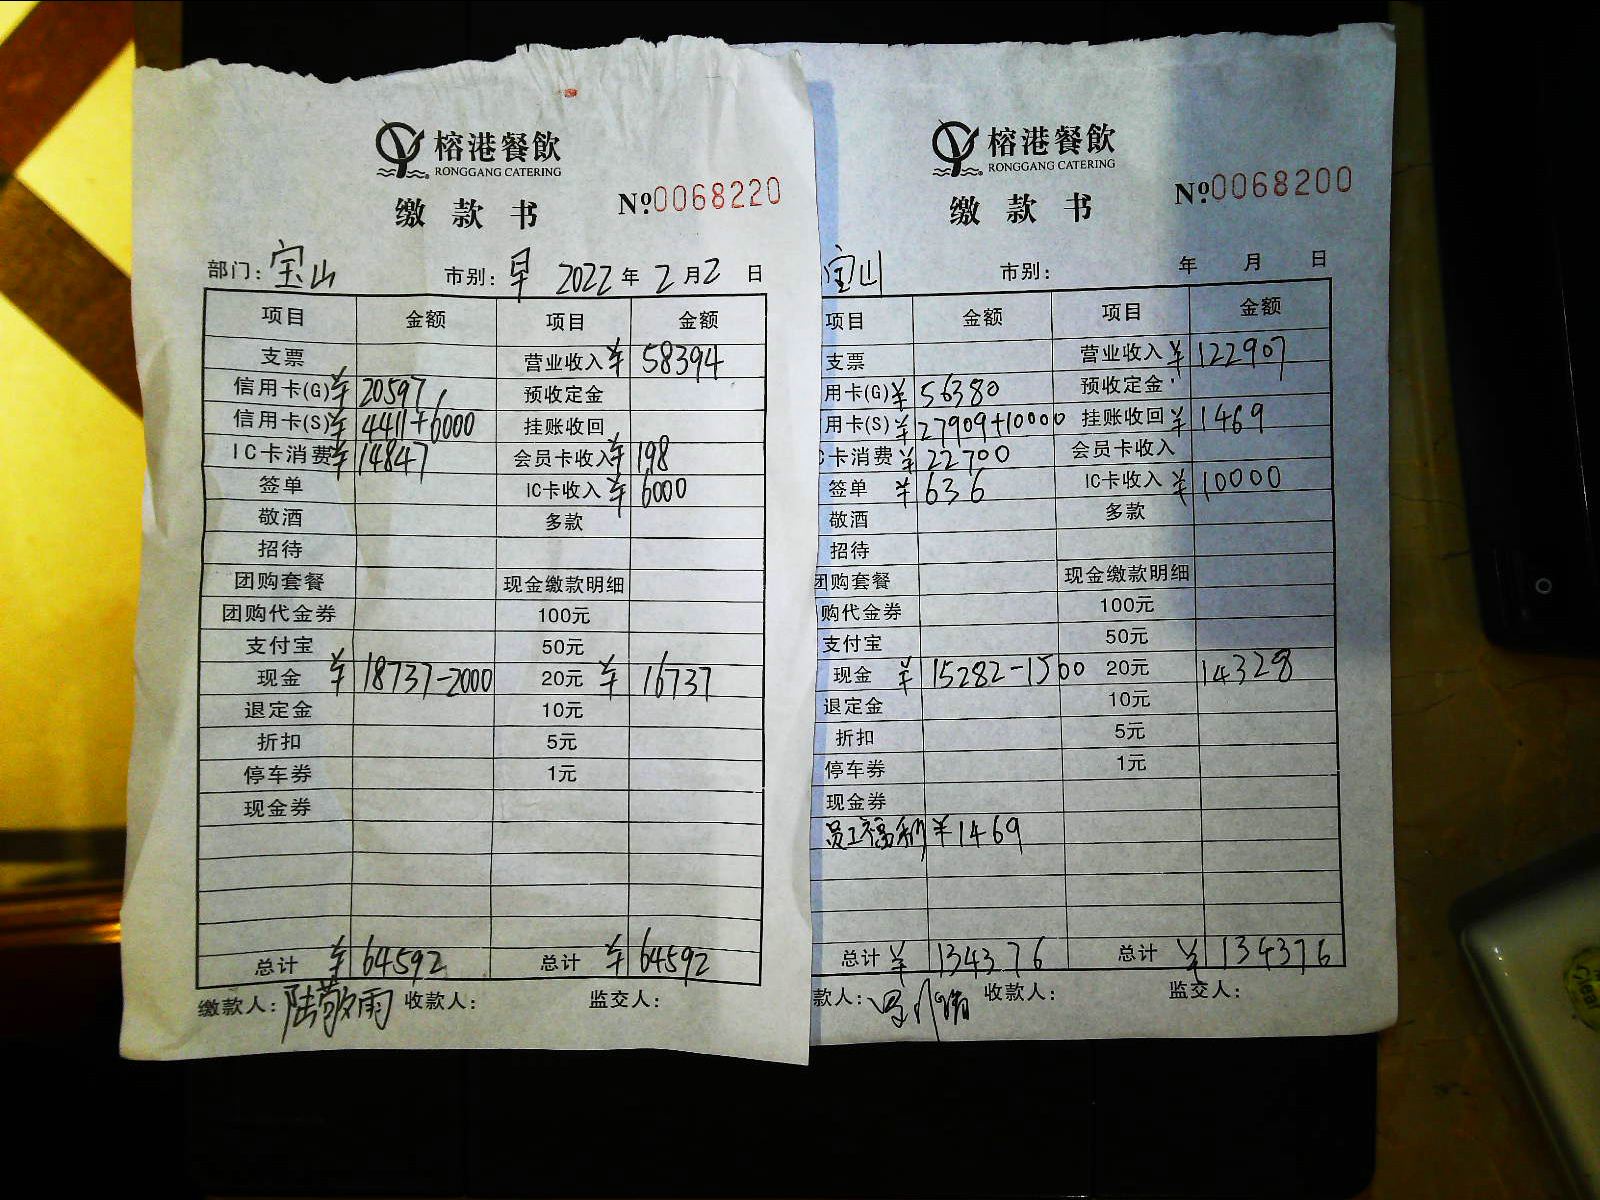 榕港餐飲
RONGGANG CATERING
缴款书 №0068220
部门：宝山 市别：早 2022年2月2日
项目 金额 项目 金额
支票 营业收入 ¥58394
信用卡(G) ¥20597 预收定金
信用卡(S) ¥4411+6000 挂账收回
IC卡消费 ¥14847 会员卡收入 ¥198
签单 IC卡收入 ¥6000
敬酒 多款
招待
团购套餐 现金缴款明细
团购代金券 100元
支付宝 50元
现金 ¥18737-2000 20元 ¥16737
退定金 10元
折扣 5元
停车券 1元
现金券
总计 ¥64592 总计 ¥64592
缴款人：陆敬雨 收款人： 监交人：
榕港餐飲
RONGGANG CATERING
缴款书 №0068200
宝山 市别： 年 月 日
项目 金额 项目 金额
支票 营业收入 ¥122907
用卡(G) ¥56380 预收定金
用卡(S) ¥27909+10000 挂账收回 ¥1469
C卡消费 ¥22700 会员卡收入
签单 ¥636 IC卡收入 ¥10000
敬酒 多款
招待
团购套餐 现金缴款明细
购代金券 100元
支付宝 50元
现金 ¥15282-1500 20元 14328
退定金 10元
折扣 5元
停车券 1元
现金券
员工福利 ¥1469
总计 ¥134376 总计 ¥134376
款人： 收款人： 监交人：